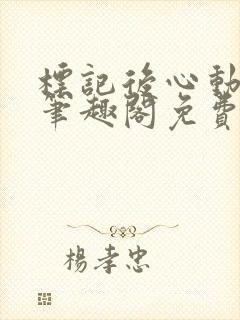 標記後心動
筆趣閣免費
楊孝忠